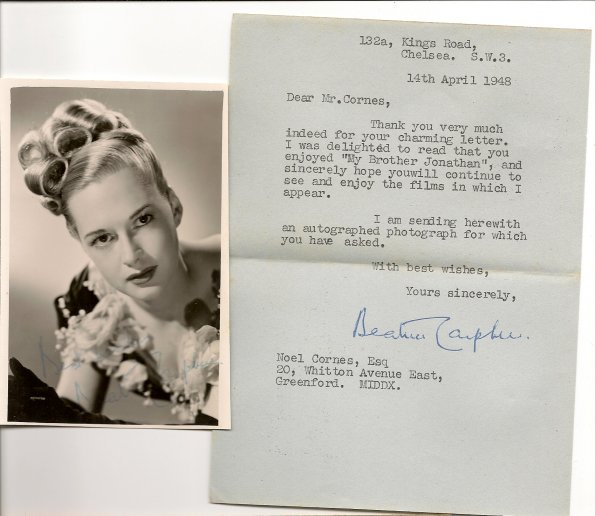 132a, Kings Road,
Chelsea. S.W.3.
14th April 1948
Dear Mr.Cornes,
Thank you very much
indeed for your charming letter.
I was delighted to read that you
enjoyed "My Brother Jonathan", and
sincerely hope youwill continue to
see and enjoy the films in which I
appear.
I am sending herewith
an autographed photograph for which
you have asked.
With best wishes,
Yours sincerely,
Beatrice Campbell.
Noel Cornes, Esq
20, Whitton Avenue East,
Greenford. MIDDX.